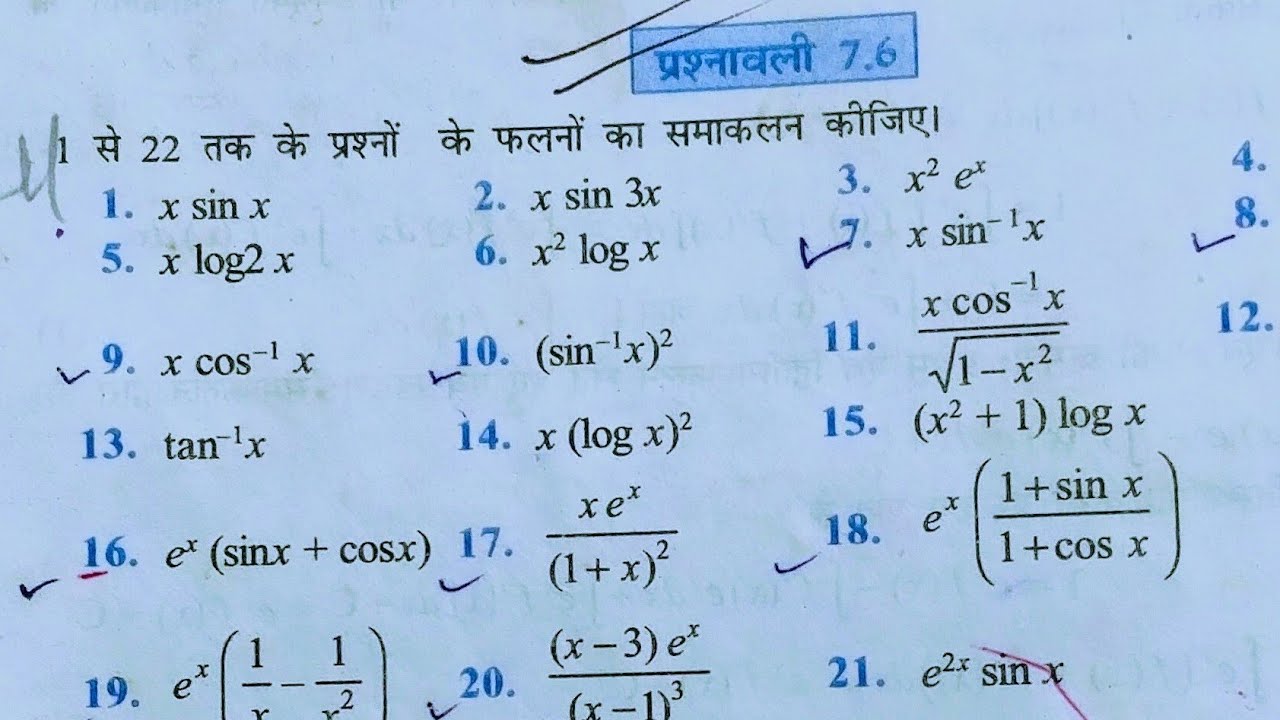 प्रश्नावली 7.6
1 से 22 तक के प्रश्नों के फलनों का समाकलन कीजिए।
1. x sin x 2. x sin 3x 3. x² eˣ 4.
5. x log2 x 6. x² log x 7. x sin⁻¹x 8.
9. x cos⁻¹ x 10. (sin⁻¹x)² 11. \frac{x cos⁻¹ x}{\sqrt{1-x²}} 12.
13. tan⁻¹x 14. x (log x)² 15. (x² + 1) log x
16. eˣ (sinx + cosx) 17. \frac{x eˣ}{(1+x)²} 18. eˣ \left(\frac{1+sin x}{1+cos x}\right)
19. eˣ \left(\frac{1}{x} - \frac{1}{x²}\right) 20. \frac{(x-3) eˣ}{(x-1)³} 21. e²ˣ sin x